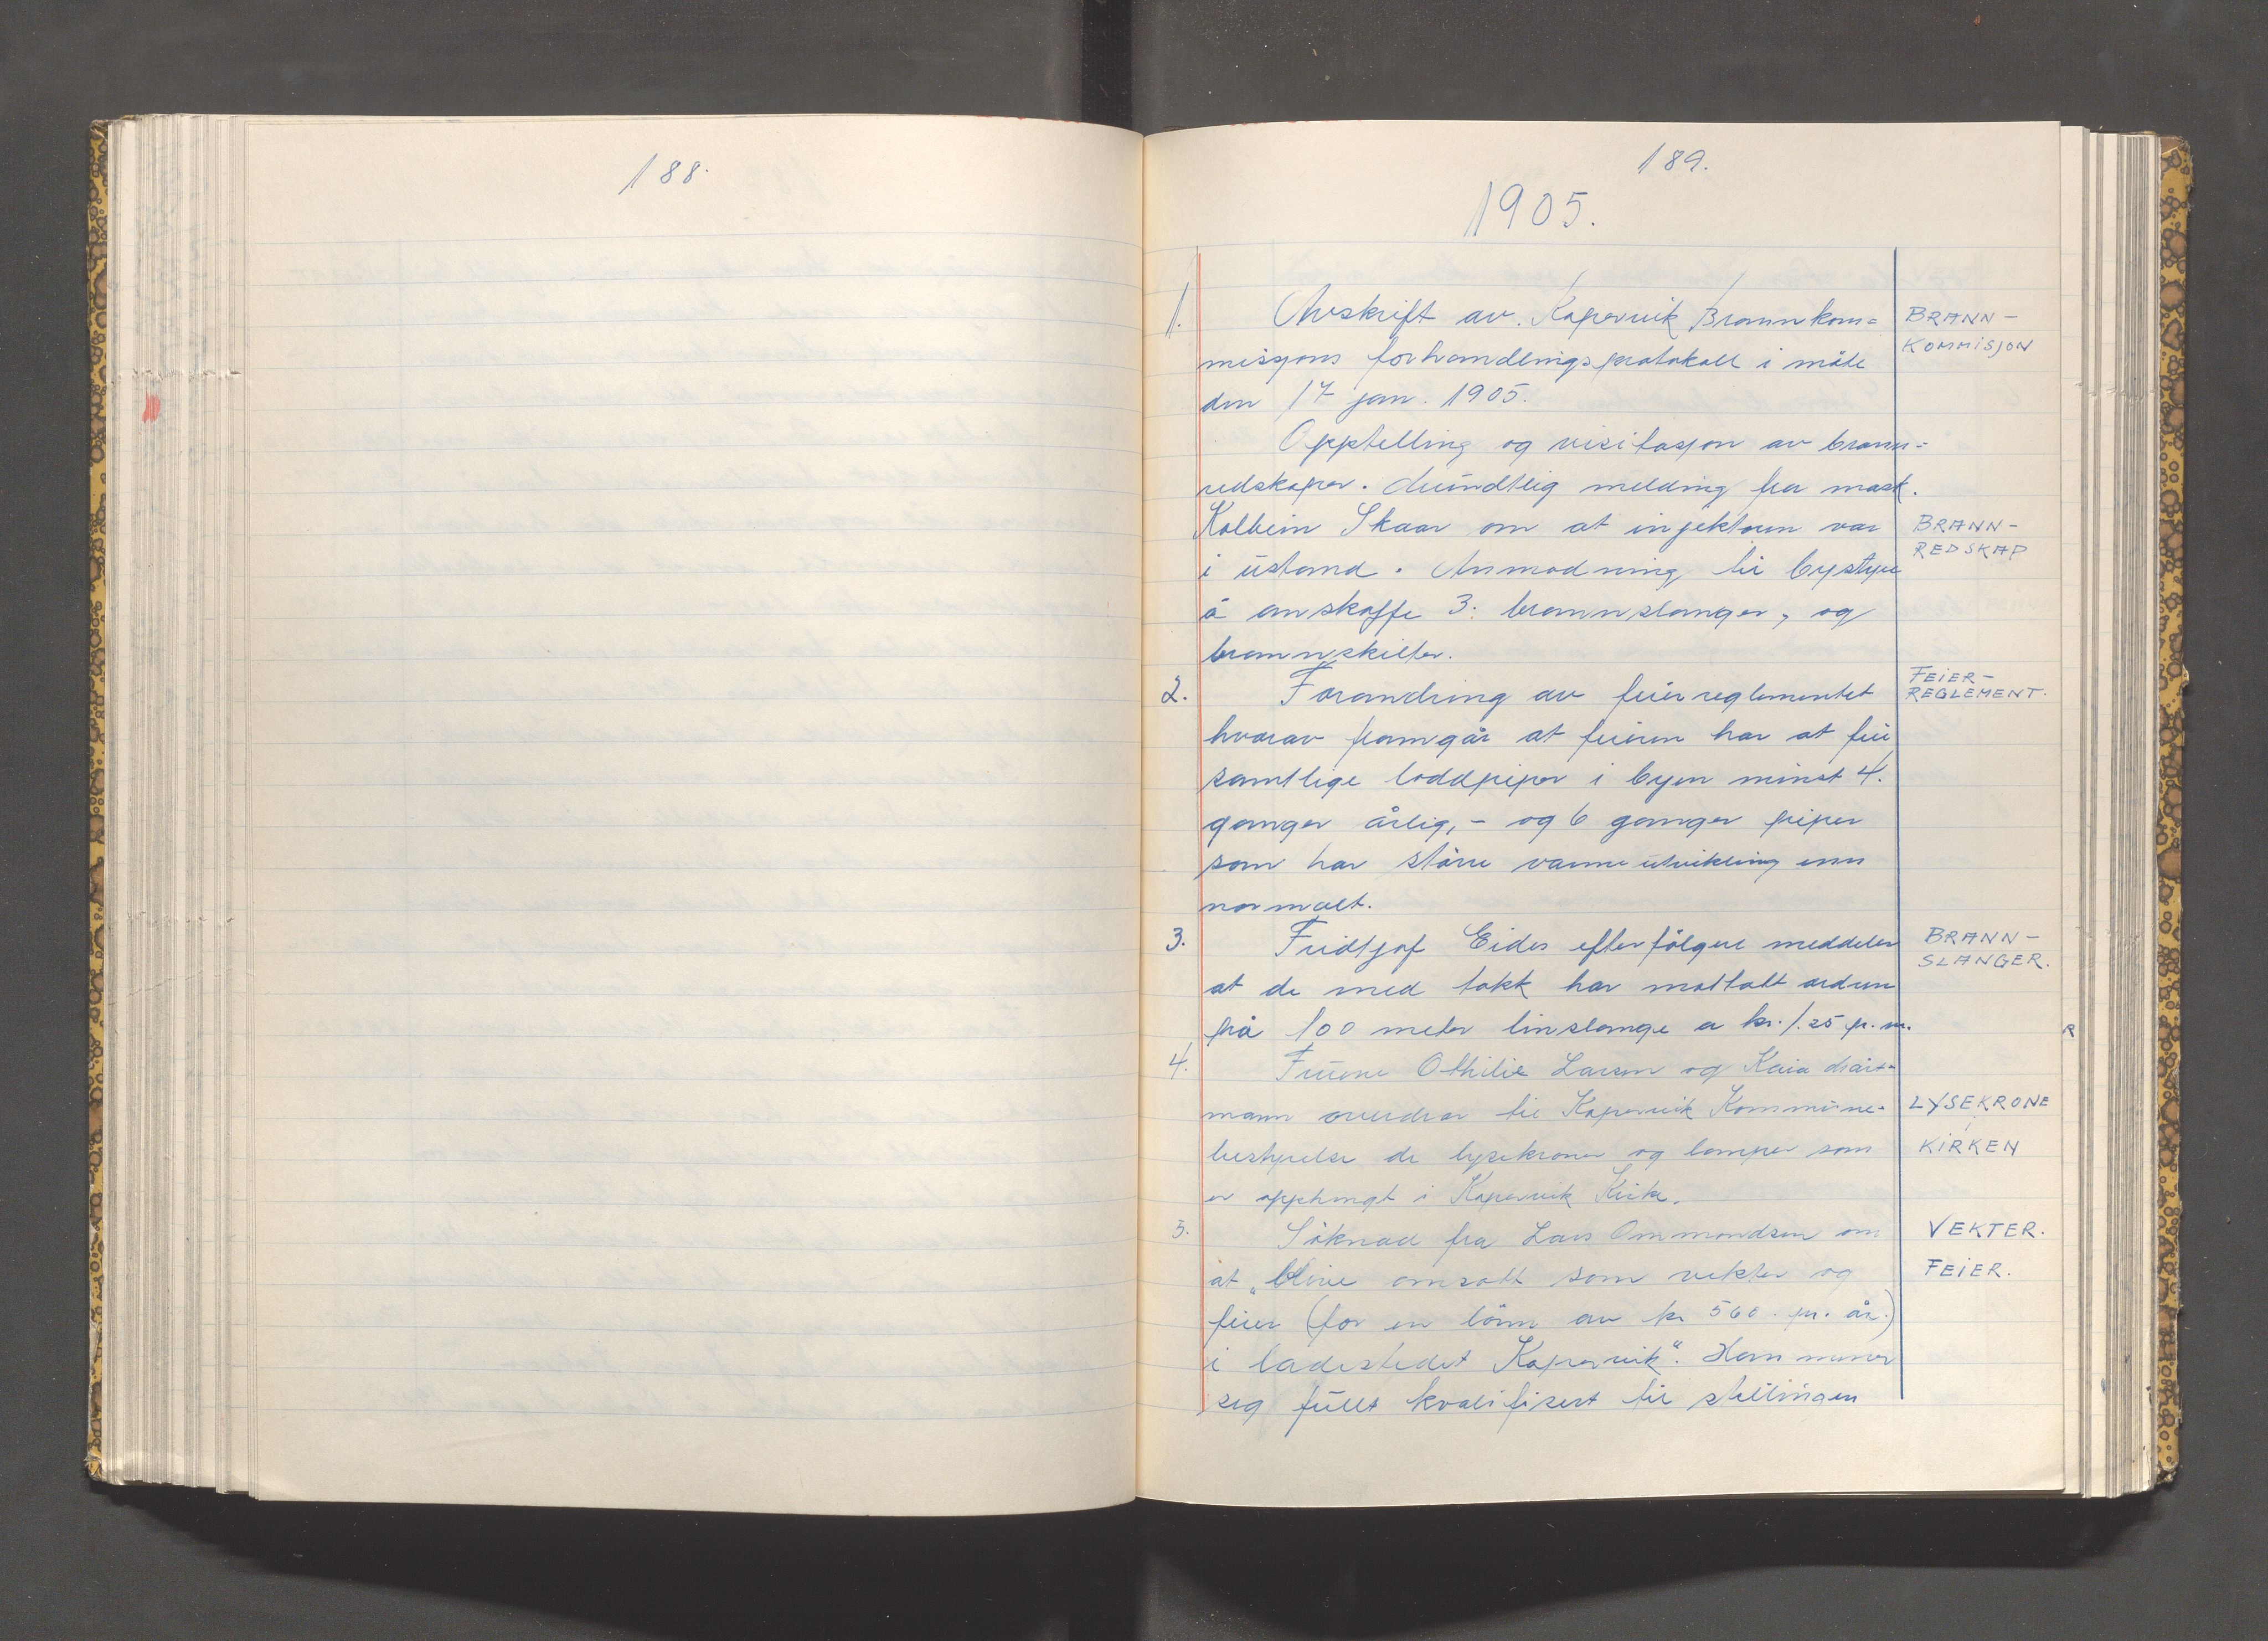 188.
189.
1905.
1. Avskrift av. Kopervik Brannkom=
BRANN-
misjons forhandlingsprotokoll i möte
KOMMISJON
den 17 jan. 1905.
Opptelling og visitasjon av brann=
redskaper. Mundtlig melding fra mask.
Kolbein Skaar om at injektoren var
BRANN-
REDSKAP
i ustand. Anmodning til bystyre
å anskaffe 3: brannslanger, og
brannskilter.
2. Forandring av feierreglementet
FEIER-
REGLEMENT.
hvorav framgår at feieren har at feie
samtlige loddpiper i byen minst 4.
ganger årlig, - og 6 ganger piper
som har större varmeutvikling enn
normalt.
3. Fridtjof Eides efterfölgere meddeler
BRANN-
SLANGER.
at de med takk har mottatt ordren
på 100 meter linslange a kr. 1.25 pr. m.
R
4. Fruene Othilie Larsen og Kaia
mann overdrar til Kopervik Kommune-
LYSEKRONE
i
bestyrelse de lysekroner og lamper som
KIRKEN
er opphengt i Kopervik Kirke.
5. Söknad fra Lars Ommundsen om
VEKTER.
at „blive ansatt som vekter og
FEIER.
feier (for en lönn av kr 560. pr. år.)
i ladestedet Kopervik". Han mener
seg fullt kvalifisert til stillingen